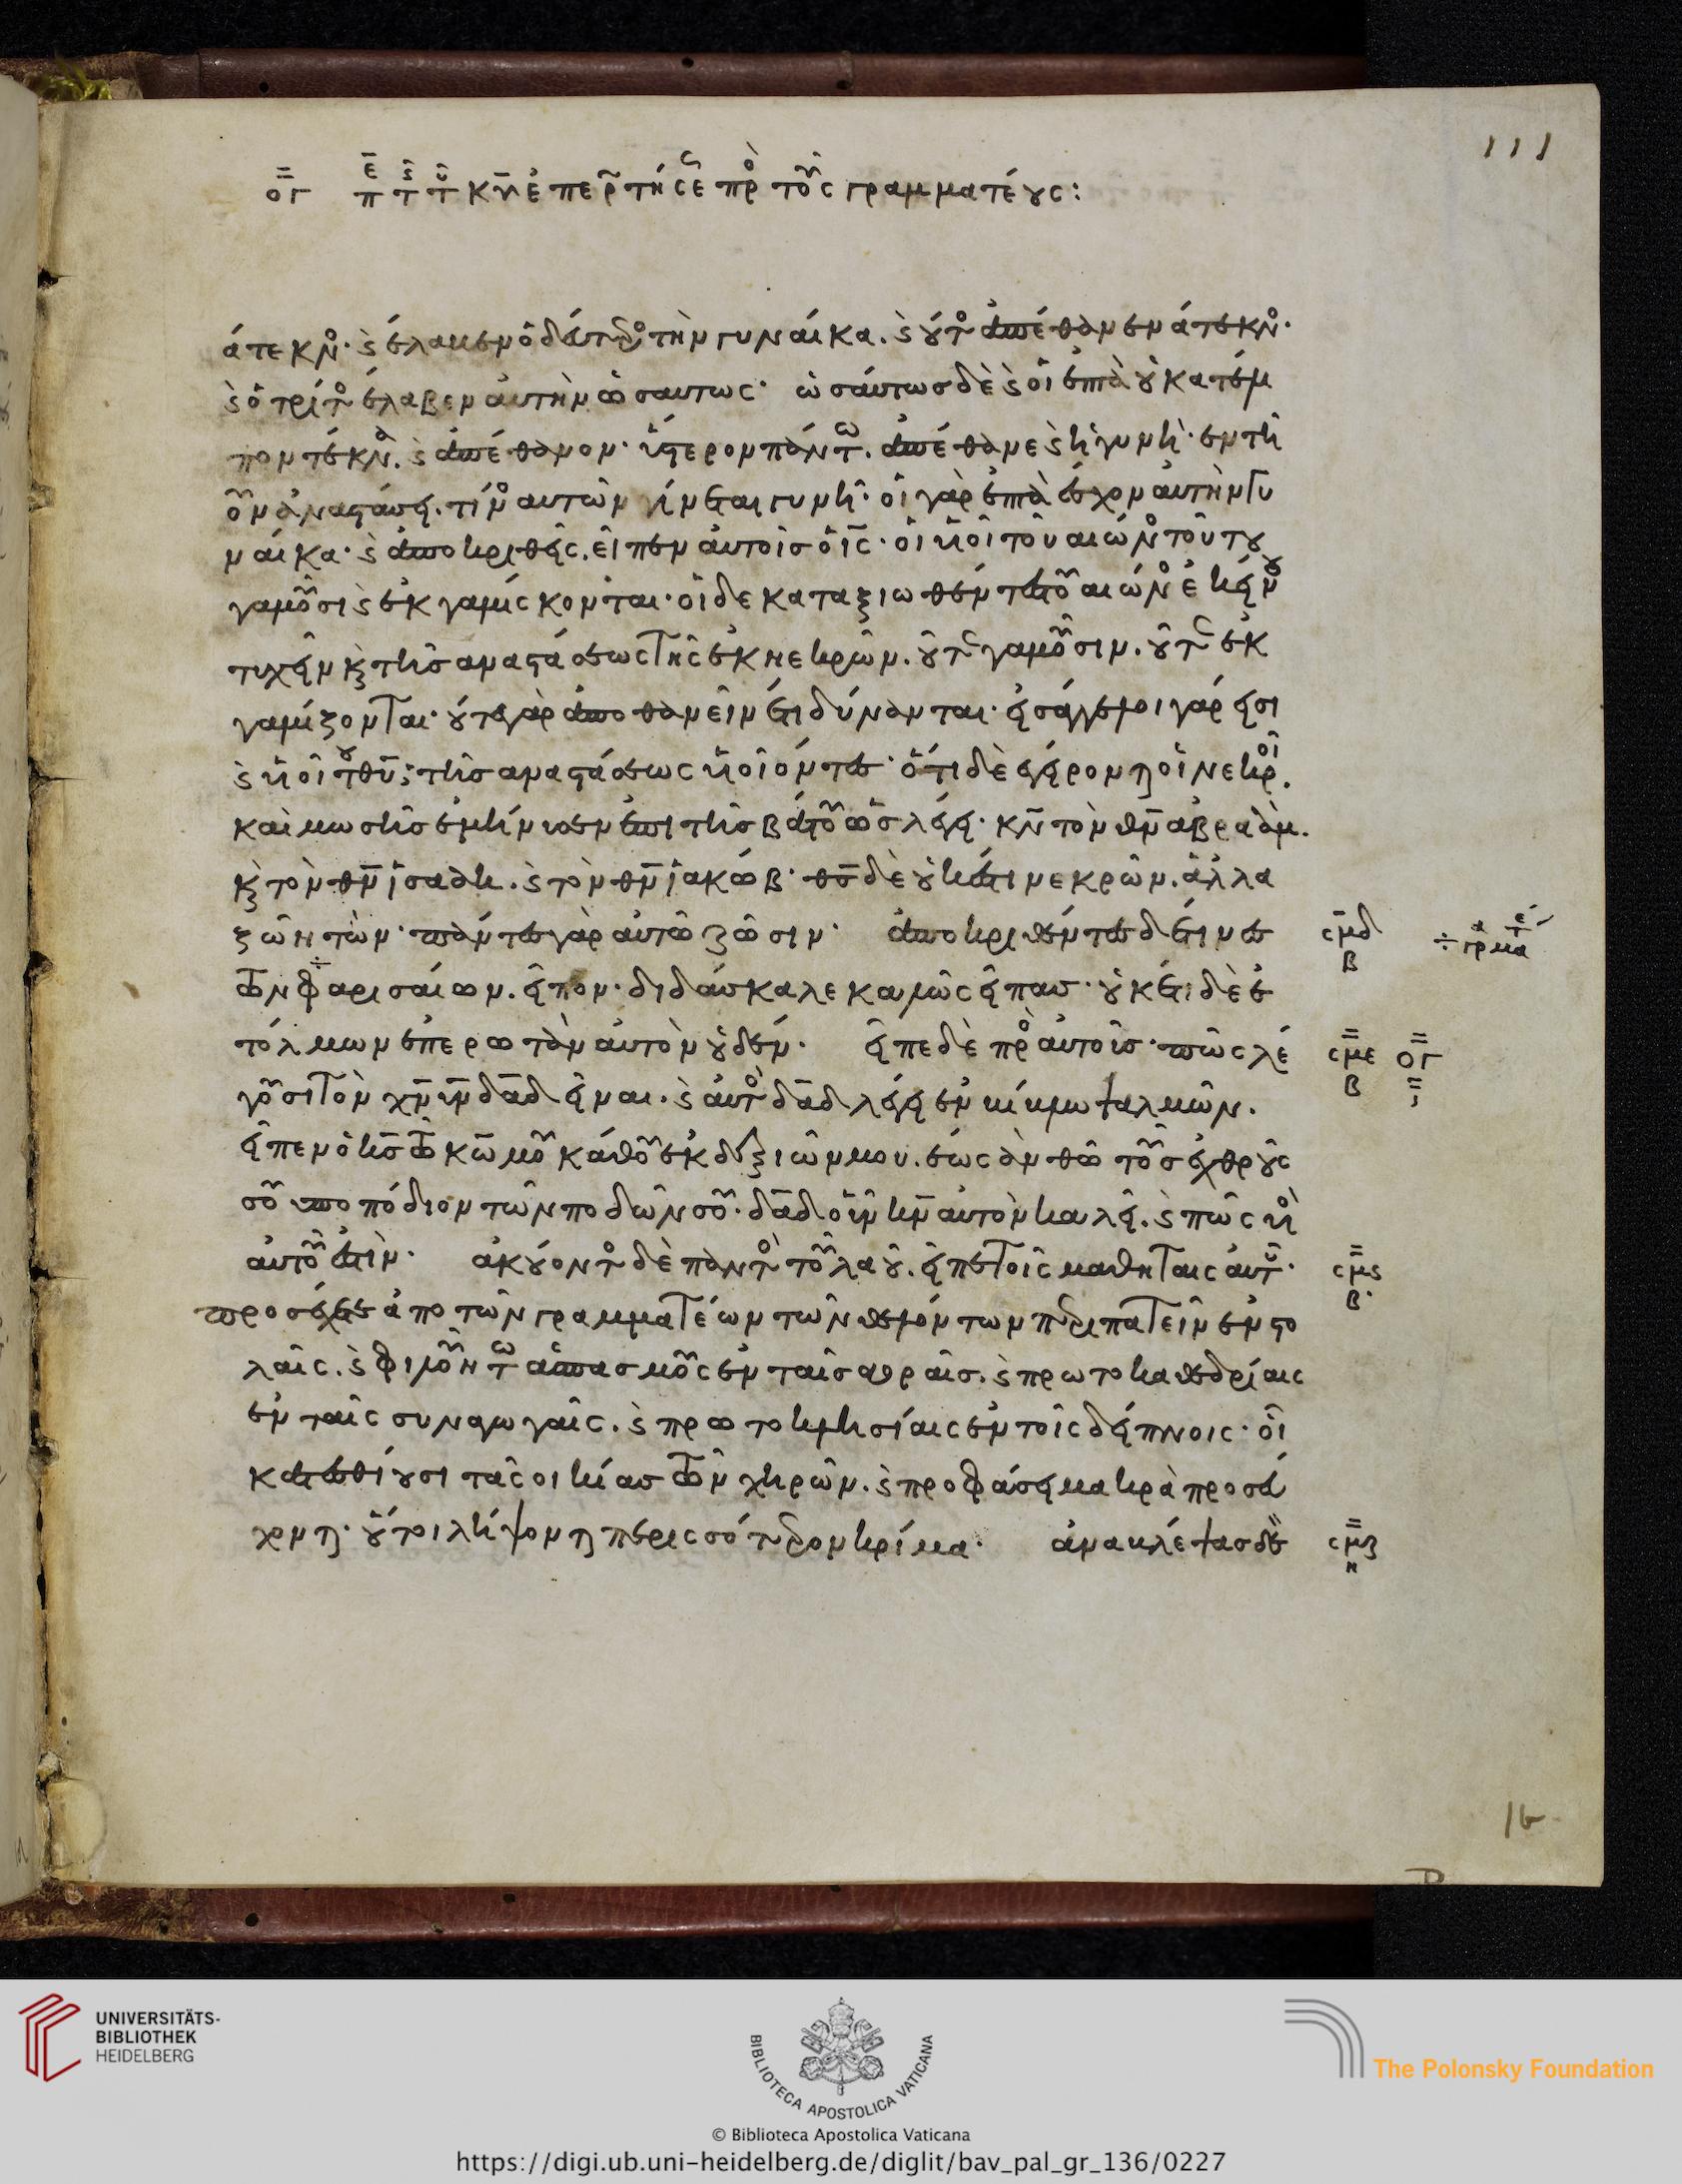 111
ογ περὶ τῆς τοῦ κ̅υ̅ ἐπερωτήσεως πρὸς τοὺς γραμματέους:
ἄτεκνος· καὶ ἔλαβεν ὁ δεύτερος τὴν γυναίκα. καὶ οὗτος ἀπέθανεν ἄτεκνος·
καὶ ὁ τρίτος ἔλαβεν αὐτὴν ὡσαύτως· ὡσαύτως δὲ καὶ οἱ ἑπτὰ οὐ κατέλι
πον τέκνα. καὶ ἀπέθανον· ὕστερον πάντων. ἀπέθανε καὶ ἡ γυνή· ἐν τῆ
οὖν ἀναστάσει. τίνος αὐτῶν γίνεται γυνή· οἱ γὰρ ἑπτὰ ἔσχον αὐτὴν γυ
ναίκα· καὶ ἀποκριθεὶς. εἶπεν αὐτοῖς ὁ ι̅ς̅· οἱ υἱοὶ τοῦ αἰῶνος τούτου
γαμοῦσι καὶ ἐκγαμίσκονται· οἱ δὲ καταξιωθέντες τοῦ αἰῶνος ἐκείνου
τυχεῖν καὶ τῆς ἀναστάσεως τῆς ἐκ νεκρῶν. οὔτε γαμοῦσιν. οὔτε ἐκ
γαμίζονται· οὔτε γὰρ ἀποθανεῖν ἔτι δύνανται· εἰσάγγελοι γάρ εἰσι
καὶ υἱοὶ τοῦ θ̅υ̅· τῆς ἀναστάσεως υἱοὶ ὄντες· ὅτι δὲ ἐγείρονται οἱ νεκροί.
καὶ μωσῆς ἐμήνυσεν ἐπὶ τῆς βάτου ὡς λέγει· κ̅ν̅ τὸν θ̅ν̅ ἀβραάμ.
καὶ τὸν θ̅ν̅ ἰσαάκ. καὶ τὸν θ̅ν̅ ἰακώβ· θ̅ς̅ δὲ οὐκ ἔστι νεκρῶν. ἀλλὰ
ζώντων· πάντες γὰρ αὐτῶ ζῶσιν· ἀποκριθέντες δέ τινες σ̅μ̅δ β
τῶν φαρισαίων. εἶπον· διδάσκαλε καλῶς εἶπας· οὐκέτι δὲ ἐ
τόλμων ἐπερωτᾶν αὐτὸν οὐδέν· εἶπε δὲ πρὸς αὐτοῖς· πῶς λέ σ̅μ̅ε β ογ
γουσι τὸν χ̅ν̅ υ̅ν̅ δ̅α̅δ̅ εἶναι. καὶ αὐτὸς δ̅α̅δ̅ λέγει ἐν βίβλω ψαλμῶν.
εἶπεν ὁ κ̅ς̅ τῶ κ̅ω̅ μου κάθου ἐκ δεξιῶν μου. ἕως ἂν θῶ τοὺς ἐχθρούς
σου ὑποπόδιον τῶν ποδῶν σου· δ̅α̅δ̅ οὖν κ̅ν̅ αὐτὸν καλεῖ. καὶ πῶς υἱὸς
αὐτοῦ ἐστὶν· ἀκούοντος δὲ παντὸς τοῦ λαοῦ. εἶπε τοῖς μαθηταῖς αὐτοῦ· σ̅μ̅ς β
προσέχετε ἀπὸ τῶν γραμματέων τῶν θελόντων περιπατεῖν ἐν στο
λαῖς. καὶ φιλούντων ἀσπασμοὺς ἐν ταῖς ἀγοραῖς. καὶ πρωτοκαθεδρίαις
ἐν ταῖς συναγωγαῖς. καὶ πρωτοκλησίαις ἐν τοῖς δείπνοις· οἳ
κατεσθίουσι τὰς οἰκίας τῶν χηρῶν. καὶ προφάσει μακρὰ προσεύ
χονται· οὗτοι λήψονται περισσότερον κρίμα· ἀναβλέψας δὲ σ̅μ̅ζ η
UNIVERSITÄTS-
BIBLIOTHEK
HEIDELBERG
BIBLIOTECA APOSTOLICA VATICANA
The Polonsky Foundation
© Biblioteca Apostolica Vaticana
https://digi.ub.uni-heidelberg.de/diglit/bav_pal_gr_136/0227